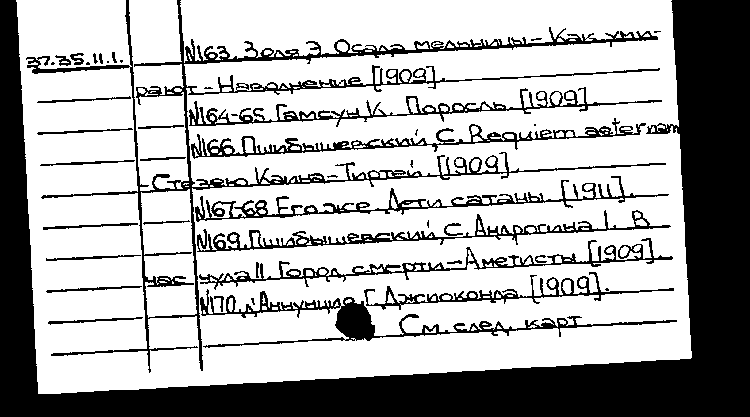 37.35.11.1. №163. Золя, Э. Осада мельницы - Как уми-
рают - Наводнение [1909].
№164-65. Гамсун, К. Поросль. [1909].
№166. Пшибышевский, С. Requiem aeternam
- Стезею Каина - Тиртей. [1909].
№167-68. Его же. Дети сатаны. [1911].
№169. Пшибышевский, С. Андрогина I. В
час чуда II. Город смерти - Аметисты [1909].
№170. д'Аннунцио, Г. Джиоконда. [1909].
См. след. карт.